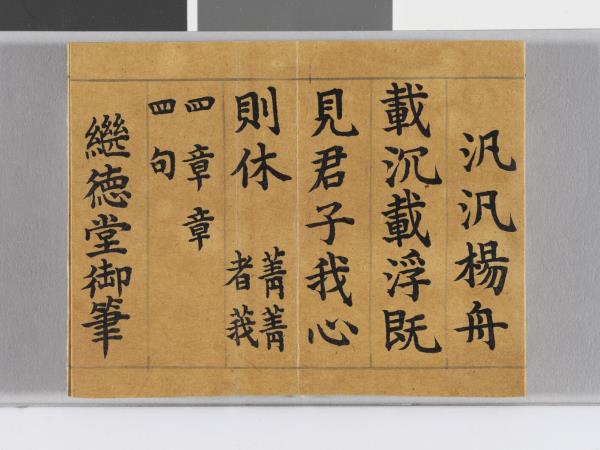 汎汎楊舟
載沉載浮既
見君子我心
則休 菁菁
者莪
四章章
四句
繼德堂御筆